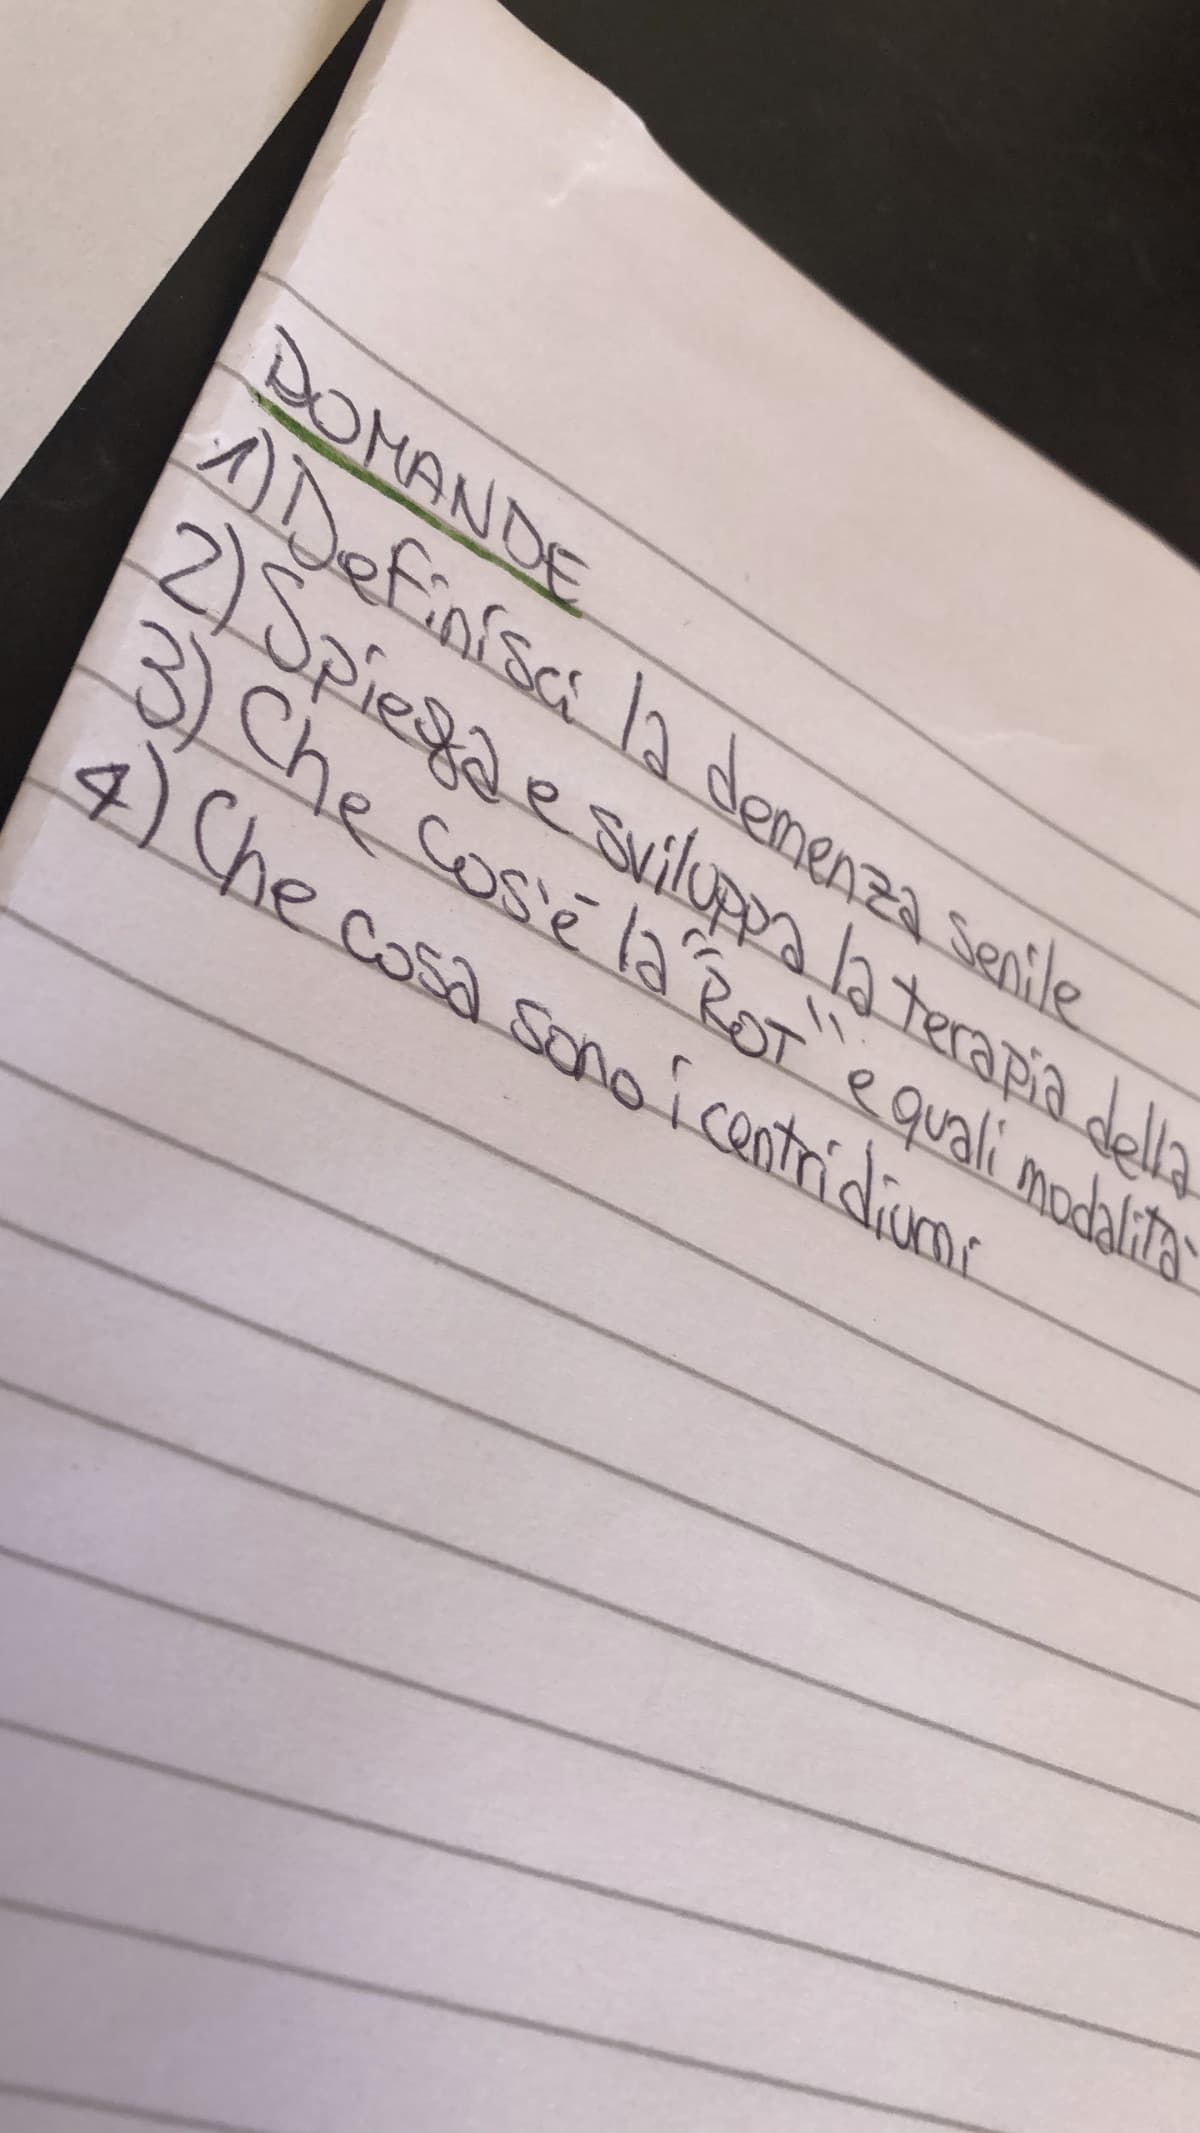 DOMANDE
1) Definisci la demenza senile
2) Spiega e sviluppa la terapia della
3) Che cos'è la "ROT" e quali modalità
4) Che cosa sono i centri diurni